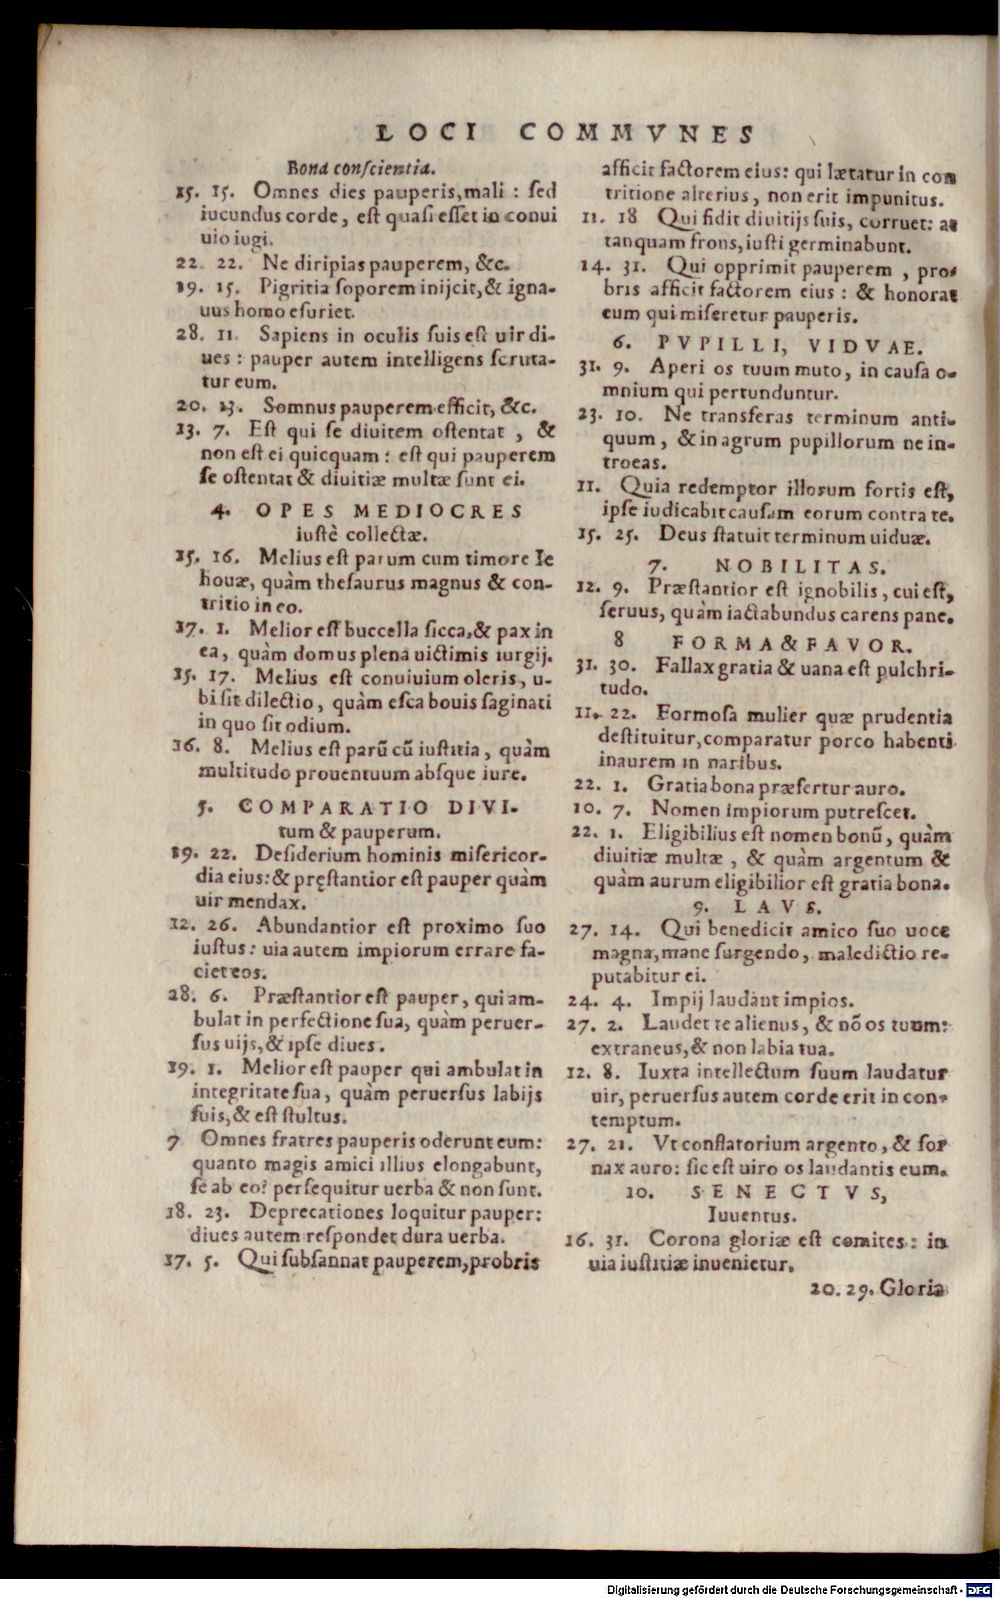 LOCI COMMVNES
Bona conſcientia.
15. 15. Omnes dies pauperis, mali : ſed
iucundus corde, eſt quaſi eſſet in conui
uio iugi.
22. 22. Ne diripias pauperem, &c.
19. 15. Pigritia ſoporem inijcit, & igna-
uus homo eſuriet.
28. 11. Sapiens in oculis ſuis eſt uir di-
ues : pauper autem intelligens ſcruta-
tur eum.
20. 13. Somnus pauperem efficit, &c.
13. 7. Eſt qui ſe diuitem oſtentat , &
non eſt ei quicquam : eſt qui pauperem
ſe oſtentat & diuitiæ multæ ſunt ei.
4. OPES MEDIOCRES
iuſtè collectæ.
15. 16. Melius eſt parum cum timore Ie
houæ, quàm theſaurus magnus & con-
tritio in eo.
17. 1. Melior eſt buccella ſicca, & pax in
ea, quàm domus plena uictimis iurgij.
15. 17. Melius eſt conuiuium oleris, u-
bi ſit dilectio, quàm eſca bouis ſaginati
in quo ſit odium.
16. 8. Melius eſt parũ cũ iuſtitia, quàm
multitudo prouentuum abſque iure.
5. COMPARATIO DIVI-
tum & pauperum.
19. 22. Deſiderium hominis miſericor-
dia eius: & pręſtantior eſt pauper quàm
uir mendax.
12. 26. Abundantior eſt proximo ſuo
iuſtus: uia autem impiorum errare fa-
ciet eos.
28. 6. Præſtantior eſt pauper, qui am-
bulat in perfectione ſua, quàm peruer-
ſus uijs, & ipſe diues.
19. 1. Melior eſt pauper qui ambulat in
integritate ſua, quàm peruerſus labijs
ſuis, & eſt ſtultus.
7 Omnes fratres pauperis oderunt eum:
quanto magis amici illius elongabunt,
ſe ab eo? perſequitur uerba & non ſunt.
18. 23. Deprecationes loquitur pauper:
diues autem reſpondet dura uerba.
17. 5. Qui ſubſannat pauperem, probris
afficit factorem eius: qui lætatur in con
tritione alterius, non erit impunitus.
11. 18 Qui fidit diuitijs ſuis, corruet: at
tanquam frons, iuſti germinabunt.
14. 31. Qui opprimit pauperem , pro-
bris afficit factorem eius : & honorat
eum qui miſeretur pauperis.
6. PVPILLI, VIDVAE.
31. 9. Aperi os tuum muto, in cauſa o-
mnium qui pertunduntur.
23. 10. Ne transferas terminum anti-
quum, & in agrum pupillorum ne in-
troeas.
11. Quia redemptor illorum fortis eſt,
ipſe iudicabit cauſam eorum contra te.
15. 25. Deus ſtatuit terminum uiduæ.
7. NOBILITAS.
12. 9. Præſtantior eſt ignobilis, cui eſt,
ſeruus, quàm iactabundus carens pane.
8 FORMA & FAVOR.
31. 30. Fallax gratia & uana eſt pulchri-
tudo.
11. 22. Formoſa mulier quæ prudentia
deſtituitur, comparatur porco habenti
inaurem in naribus.
22. 1. Gratia bona præfertur auro.
10. 7. Nomen impiorum putreſcet.
22. 1. Eligibilius eſt nomen bonũ, quàm
diuitiæ multæ , & quàm argentum &
quàm aurum eligibilior eſt gratia bona.
9. LAVS.
27. 14. Qui benedicit amico ſuo uoce
magna, mane ſurgendo, maledictio re-
putabitur ei.
24. 4. Impij laudant impios.
27. 2. Laudet te alienus, & nõ os tuum:
extraneus, & non labia tua.
12. 8. Iuxta intellectum ſuum laudatur
uir, peruerſus autem corde erit in con-
temptum.
27. 21. Vt conflatorium argento, & for
nax auro: ſic eſt uiro os laudantis eum.
10. SENECTVS,
Iuuentus.
16. 31. Corona gloriæ eſt comites : in
uia iuſtitiæ inuenietur.
20. 29. Gloria
Digitalisierung gefördert durch die Deutsche Forschungsgemeinschaft - DFG